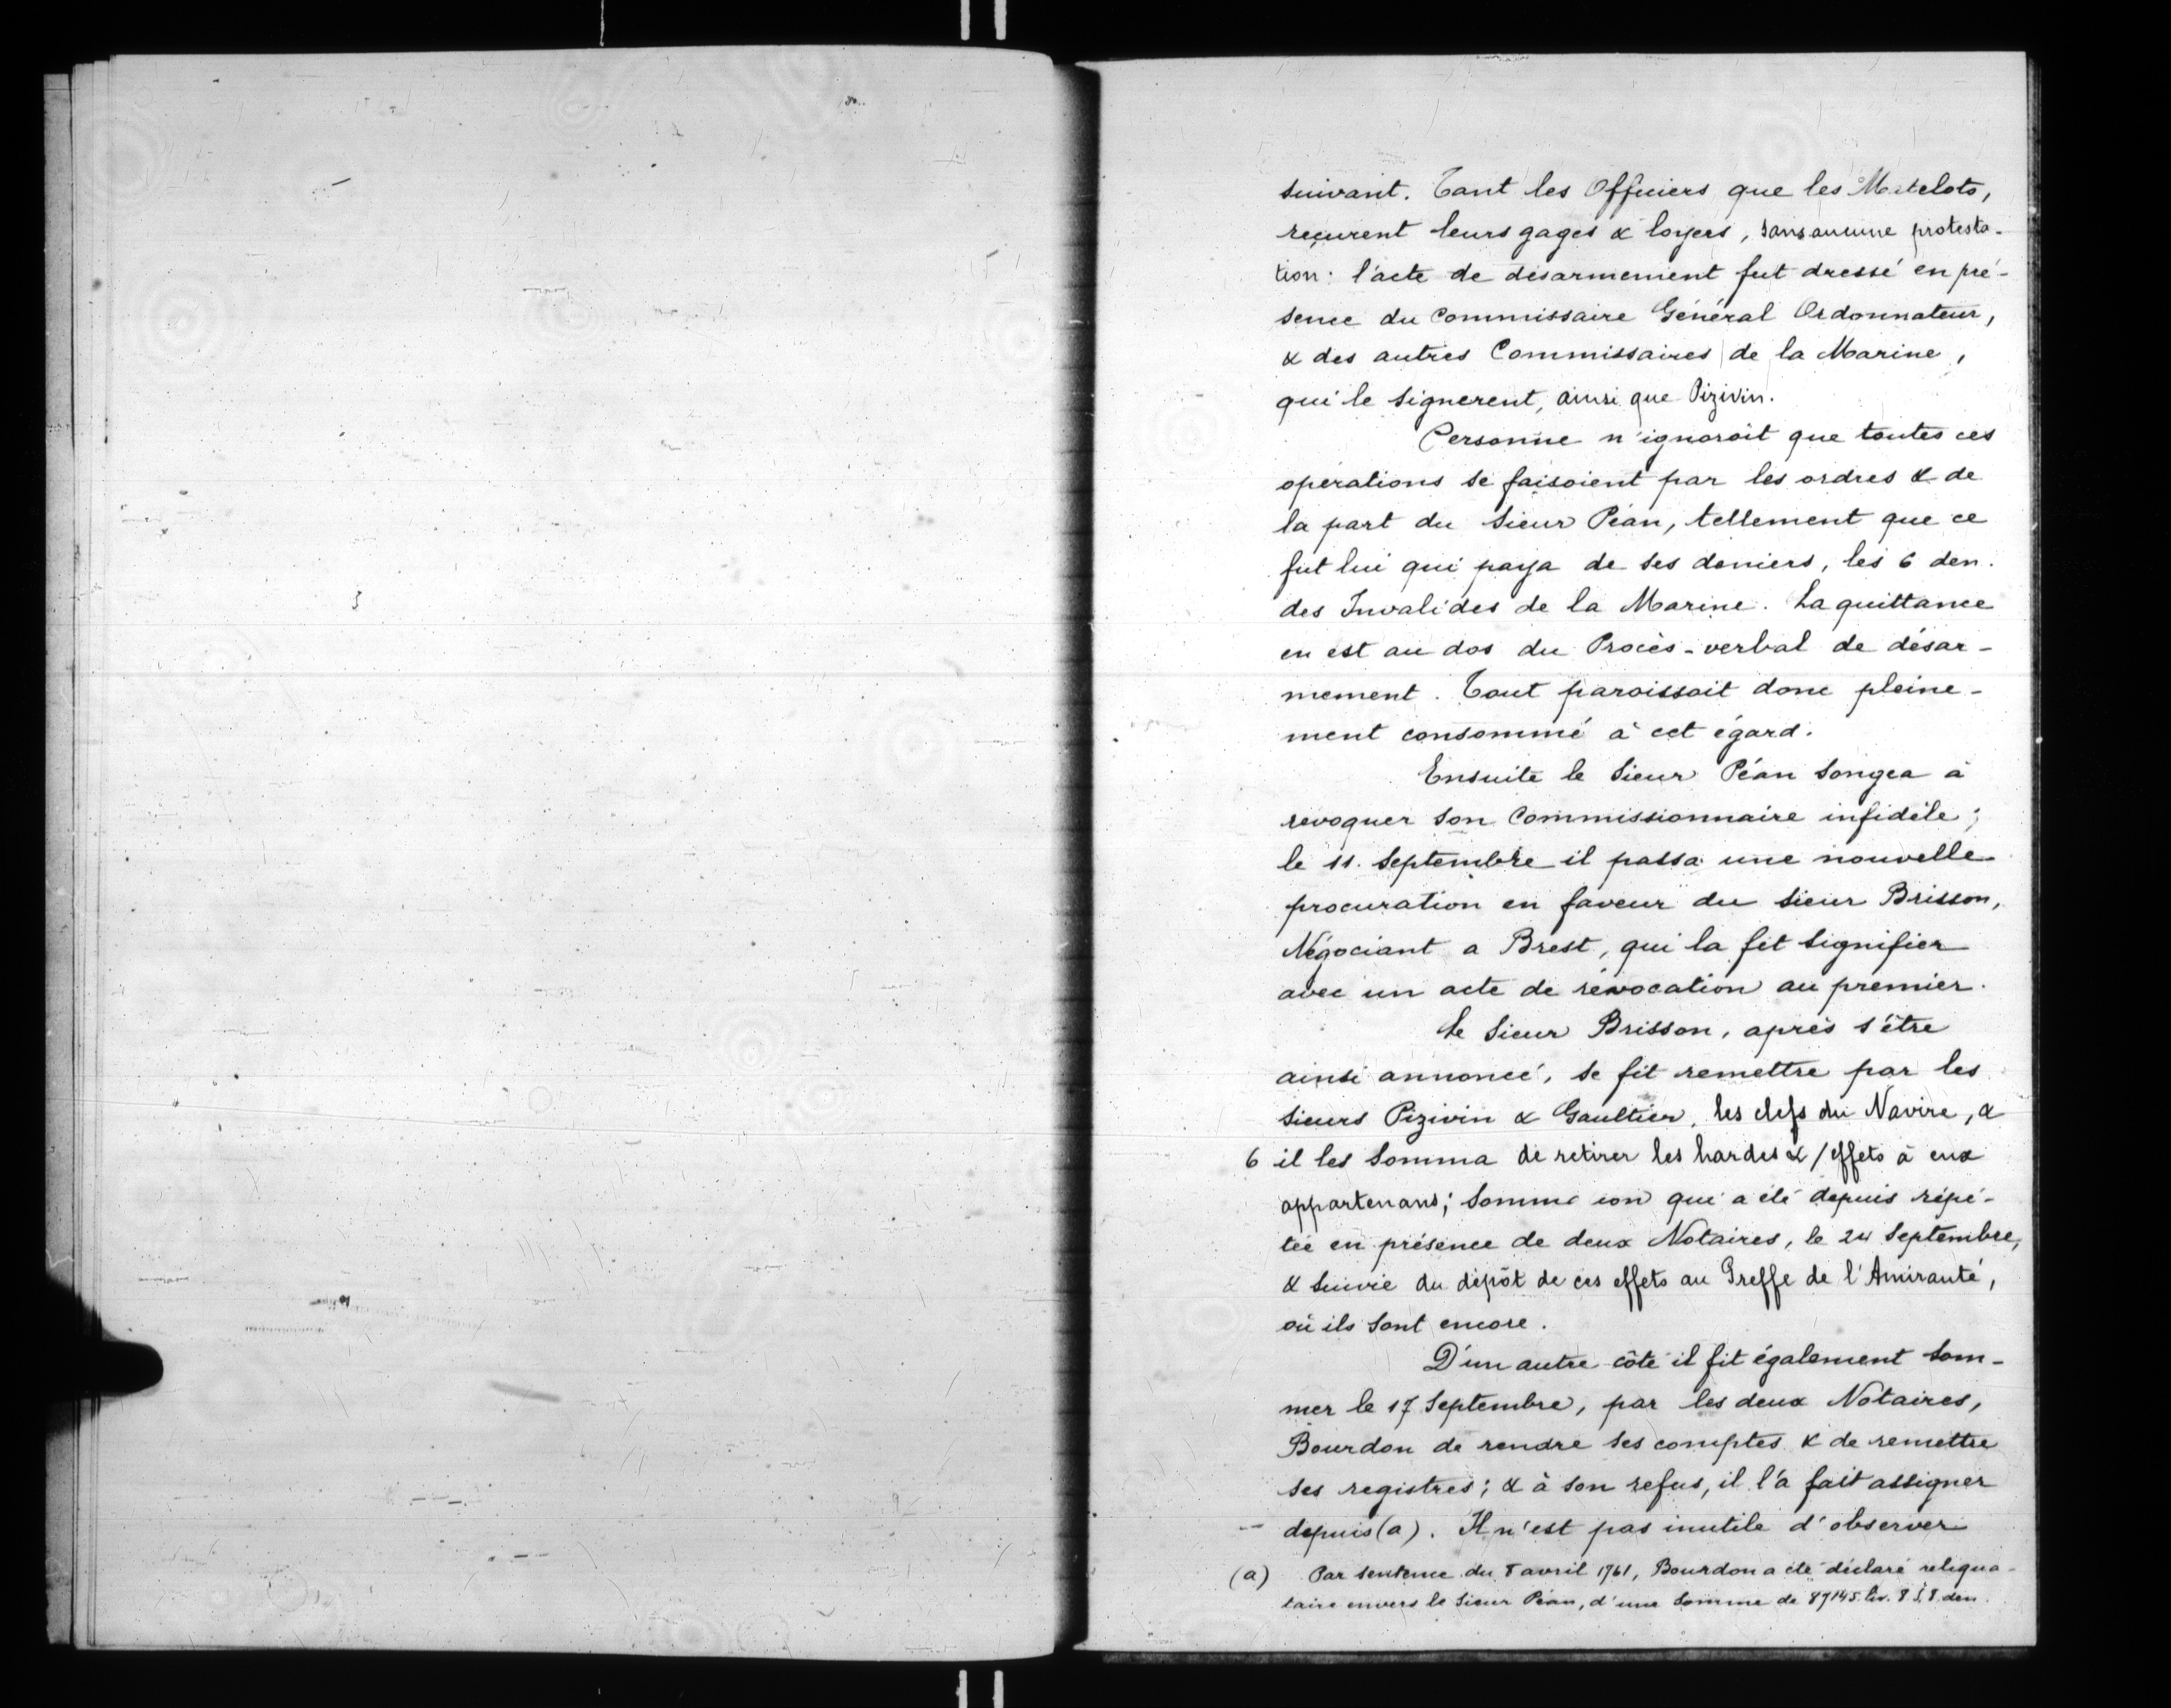 suivant. Tant les Officiers que les Matelots,
reçurent leurs gages & loyers, sans aucune protesta-
tion : l'acte de désarmement fut dressé en pré-
sence du Commissaire Général Ordonnateur,
& des autres Commissaires de la Marine,
qui le signerent, ainsi que Pizivin.
Personne n'ignoroit que toutes ces
opérations se faisoient par les ordres & de
la part du Sieur Péan, tellement que ce
fut lui qui paya de ses deniers, les 6 den.
des Invalides de la Marine. La quittance
en est au dos du Procès-verbal de désar-
mement. Tout paroissoit donc pleine-
ment consommé à cet égard.
Ensuite le Sieur Péan songea à
révoquer son Commissionnaire infidèle ;
le 11. Septembre il passa une nouvelle
procuration en faveur du sieur Brisson,
Négociant a Brest, qui la fit signifier
avec un acte de révocation au premier.
Le Sieur Brisson, après s'être
ainsi annoncé, se fit remettre par les
Sieurs Pizivin & Gaultier, les clefs du Navire, &
6 il les somma de retirer les hardes & / effets à eux
appartenans ; somma ion qui a été depuis répé-
tée en présence de deux Notaires, le 24 Septembre,
& suivie du dépôt de ces effets au Greffe de l'Amirauté,
où ils sont encore.
D'un autre côté il fit également som-
mer le 17 Septembre, par les deux Notaires,
Bourdon de rendre ses comptes & de remettre
ses registres ; & à son refus, il l'a fait assigner
depuis (a). Il n'est pas inutile d'observer
(a) Par sentence du 8 avril 1761, Bourdon a été déclaré reliqua-
taire envers le Sieur Péan, d'une somme de 87145. liv. 8 s. 8. den.